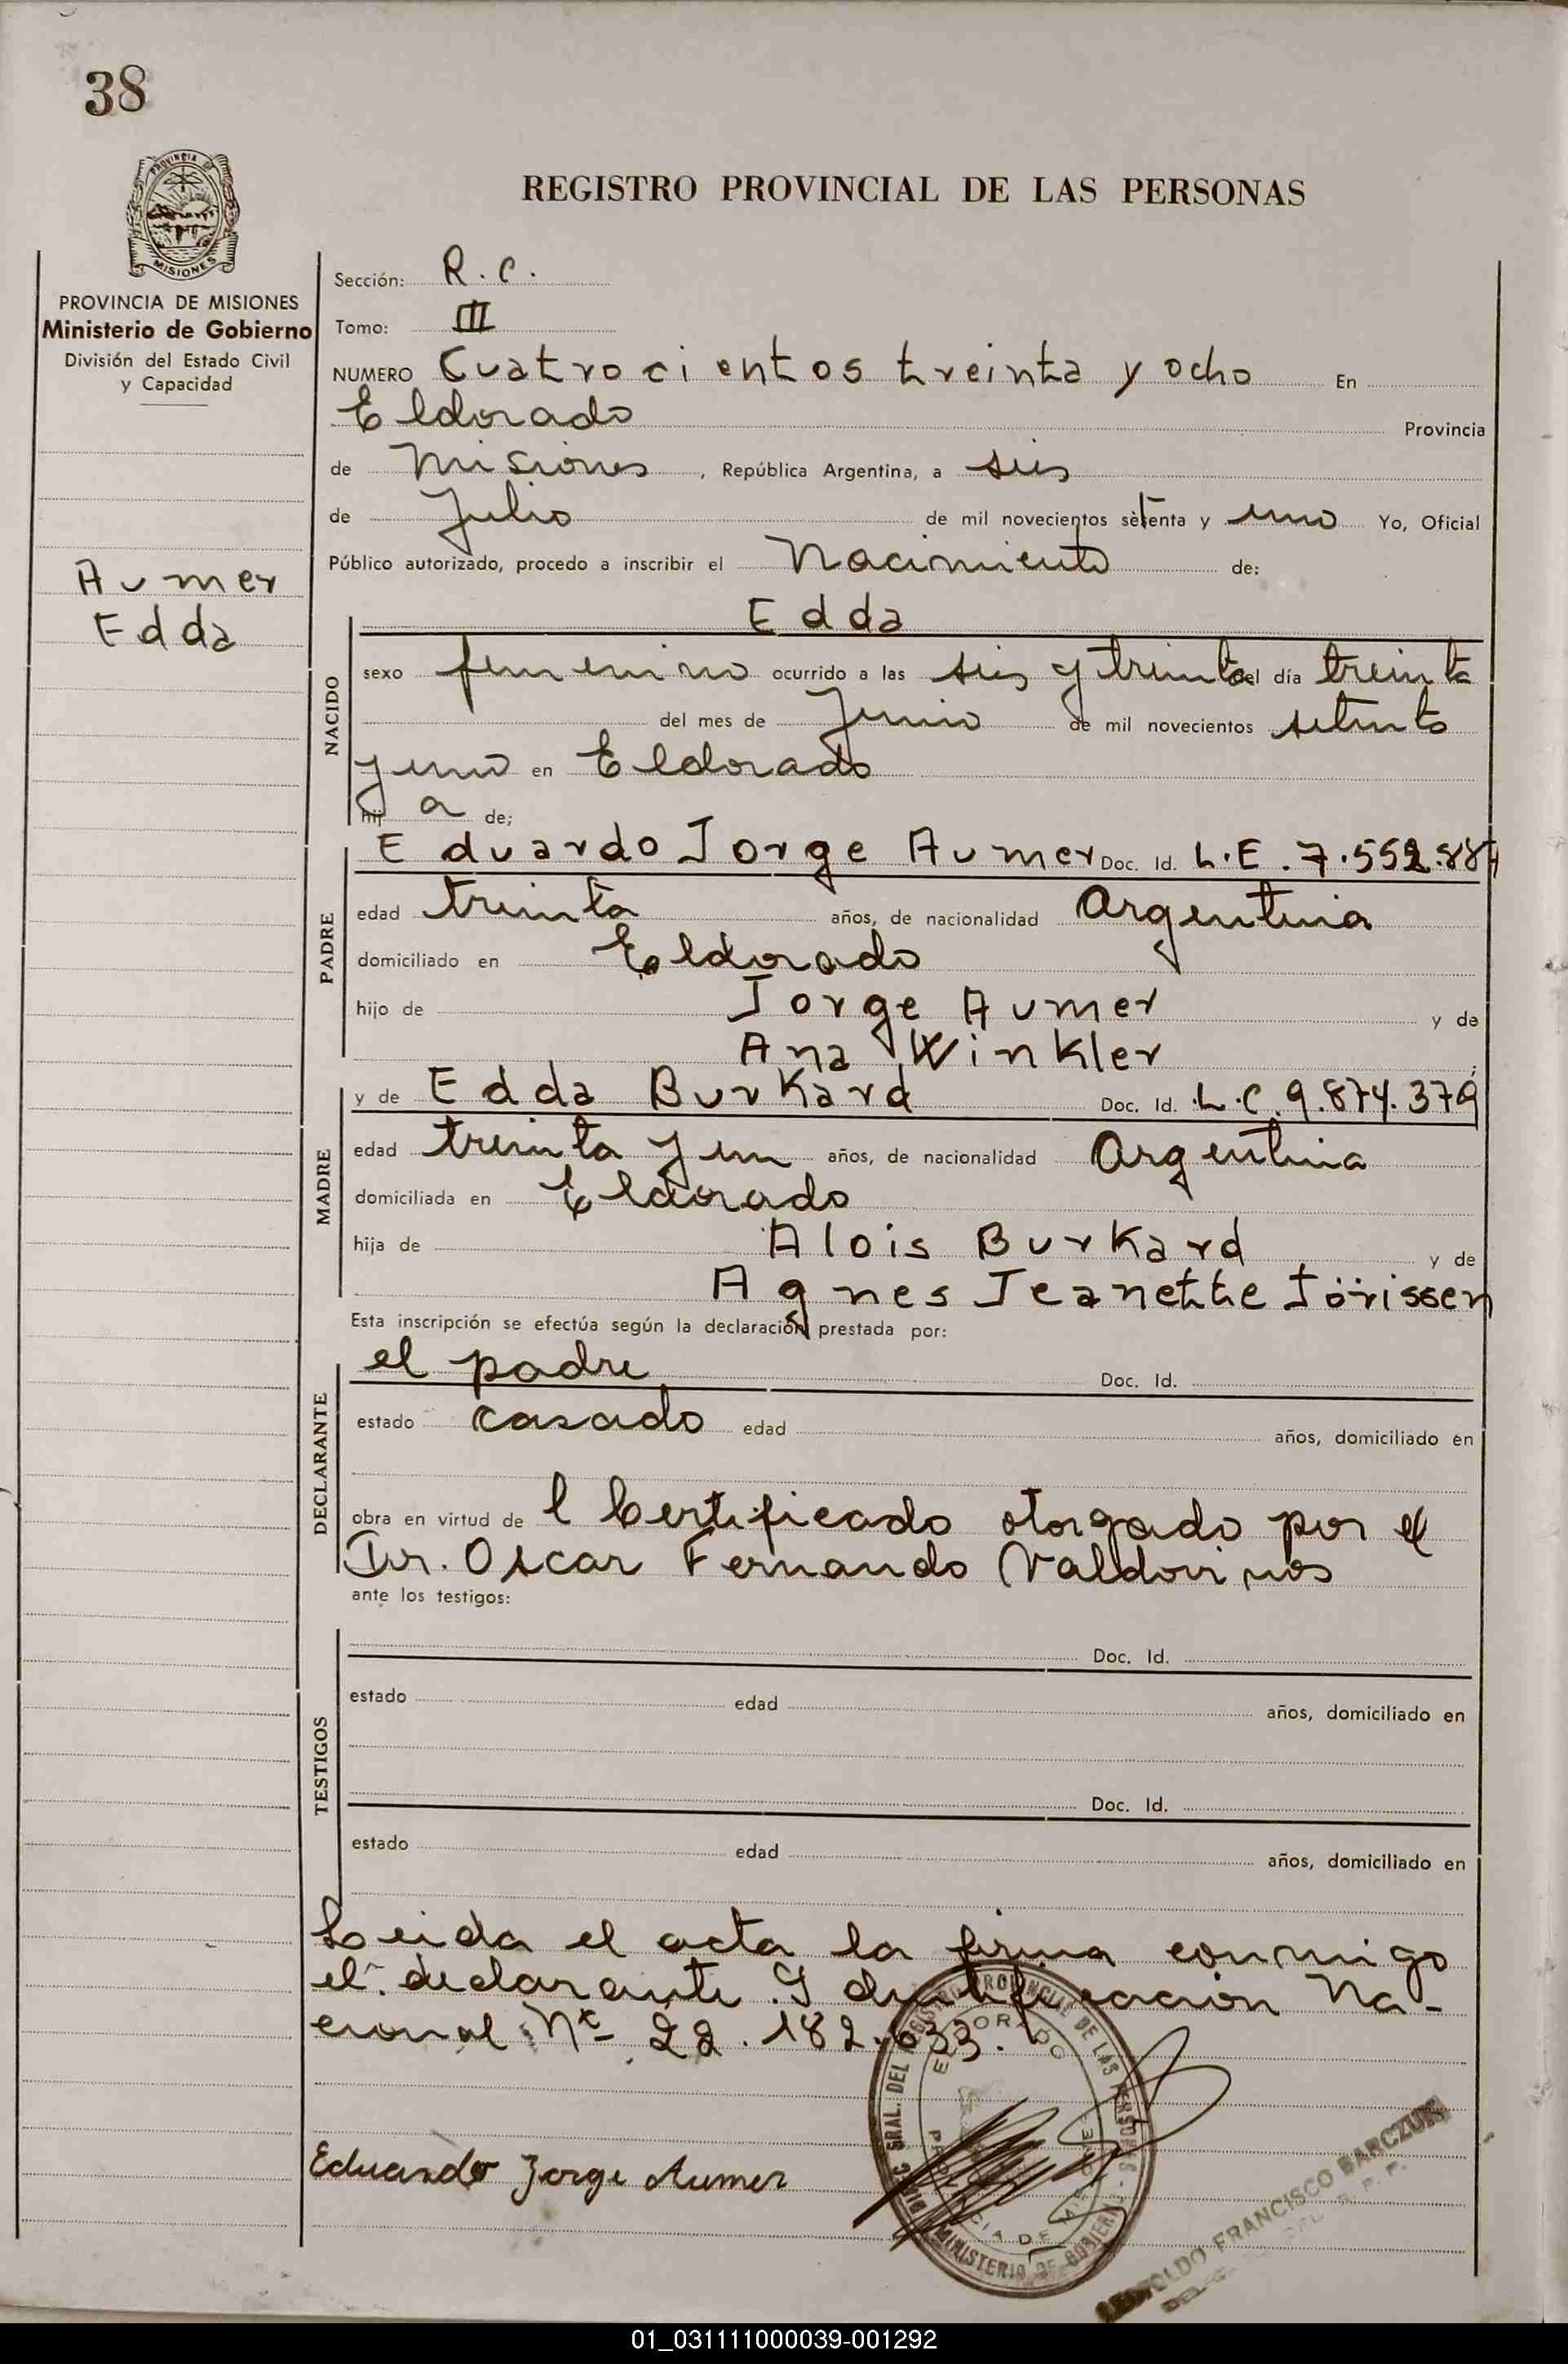 38
PROVINCIA DE
MISIONES
REGISTRO PROVINCIAL DE LAS PERSONAS
PROVINCIA DE MISIONES
Ministerio de Gobierno
División del Estado Civil
y Capacidad
Aumer
Edda
Sección: R. C.
Tomo: III
NUMERO Cuatrocientos treinta y ocho En
Eldorado Provincia
de Misiones, República Argentina, a seis
de Julio de mil novecientos setenta y uno Yo, Oficial
Público autorizado, procedo a inscribir el Nacimiento de:
Edda
NACIDO
sexo femenino ocurrido a las seis y treinta del día treinta
del mes de Junio de mil novecientos setenta
y uno en Eldorado
hij a de;
PADRE
Eduardo Jorge Aumer Doc. Id. L.E. 7.552.887
edad treinta años, de nacionalidad Argentina
domiciliado en Eldorado
hijo de Jorge Aumer y de
Ana Winkler
MADRE
y de Edda Burkard Doc. Id. L.C. 9.874.379
edad treinta y un años, de nacionalidad Argentina
domiciliada en Eldorado
hija de Alois Burkard y de
Agnes Jeanette Jörissen
Esta inscripción se efectúa según la declaración prestada por:
DECLARANTE
el padre Doc. Id.
estado casado edad años, domiciliado en
obra en virtud de l Certificado otorgado por el
Dr. Oscar Fernando Valdovinos
ante los testigos:
TESTIGOS
Doc. Id.
estado edad años, domiciliado en
Doc. Id.
estado edad años, domiciliado en
Leida el acta la firma conmigo
el declarante. Identificación Na-
cional Nº 22.182.033.
Eduardo Jorge Aumer
GRAL. DEL REGISTRO PROVINCIAL DE LAS PERSONAS
ELDORADO
PROVINCIA DE MISIONES
MINISTERIO DE GOBIERNO
LEOPOLDO FRANCISCO BARCZUK
01_031111000039-001292